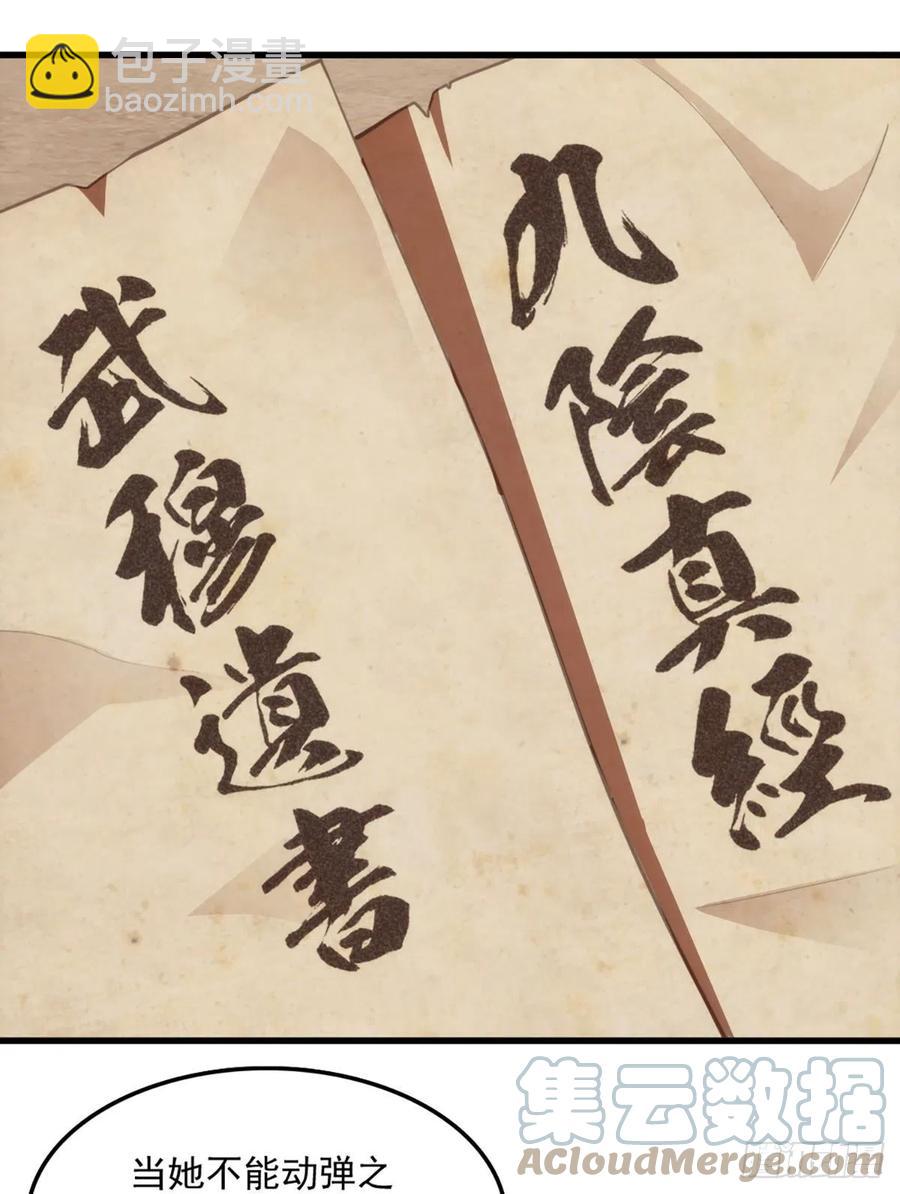 包子漫畫
baozimh.com
九陰真經
武穆遺書
集云数据
ACloudMerge.com
当她不能动弹之